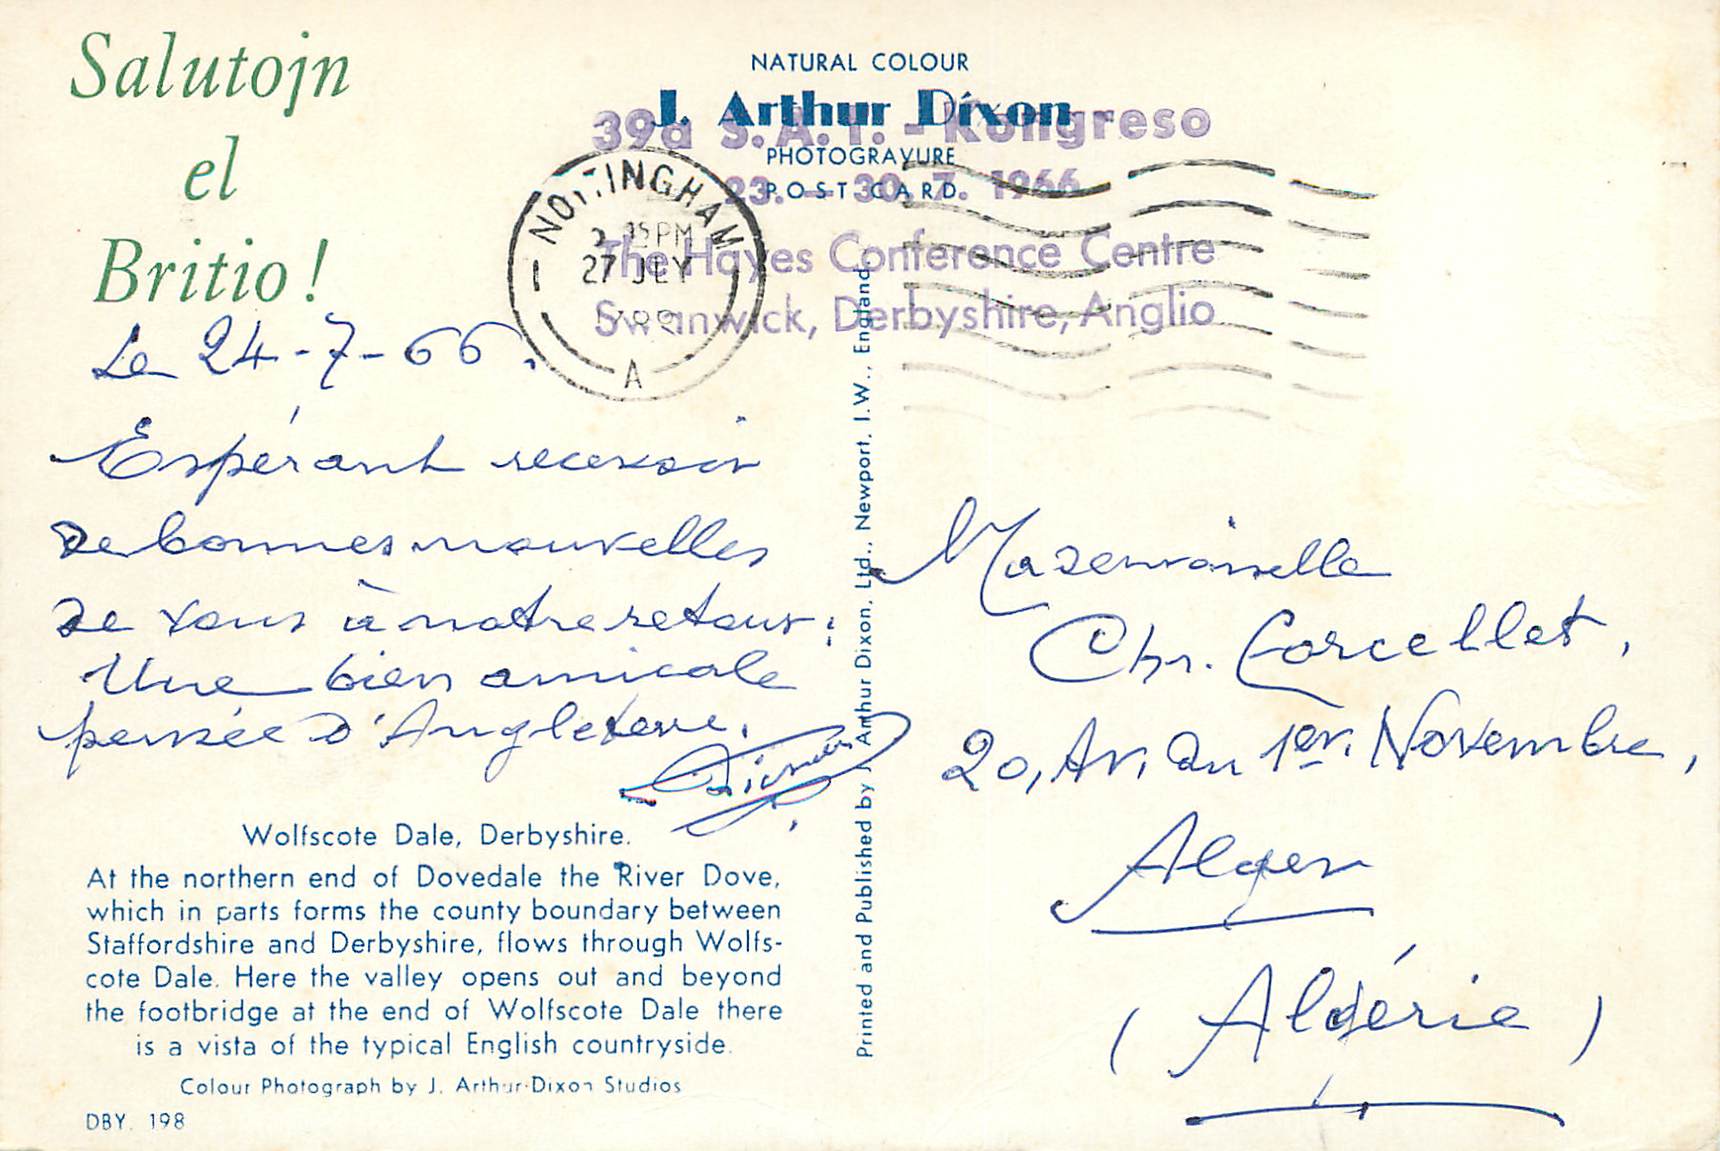 Salutojn
el
Britio!
NATURAL COLOUR
J. Arthur Dixon
PHOTOGRAVURE
POST CARD
39a S.A.T. - Kongreso
23. - 30. 7. 1966
The Hayes Conference Centre
Swanwick, Derbyshire, Anglio
NOTTINGHAM
15 PM
27 JLY
A
Le 24-7-66.
Espérant recevoir
de bonnes nouvelles
de vous à notre retour:
Une bien amicale
pensée d'Angleterre.
Mademoiselle
Chr. Forcellet,
20, Av. du 1er. Novembre,
Alger
(Algérie)
Wolfscote Dale, Derbyshire.
At the northern end of Dovedale the River Dove,
which in parts forms the county boundary between
Staffordshire and Derbyshire, flows through Wolfs-
cote Dale. Here the valley opens out and beyond
the footbridge at the end of Wolfscote Dale there
is a vista of the typical English countryside.
Colour Photograph by J. Arthur Dixon Studios
DBY. 198
Printed and Published by J. Arthur Dixon, Ltd., Newport, I.W., England.